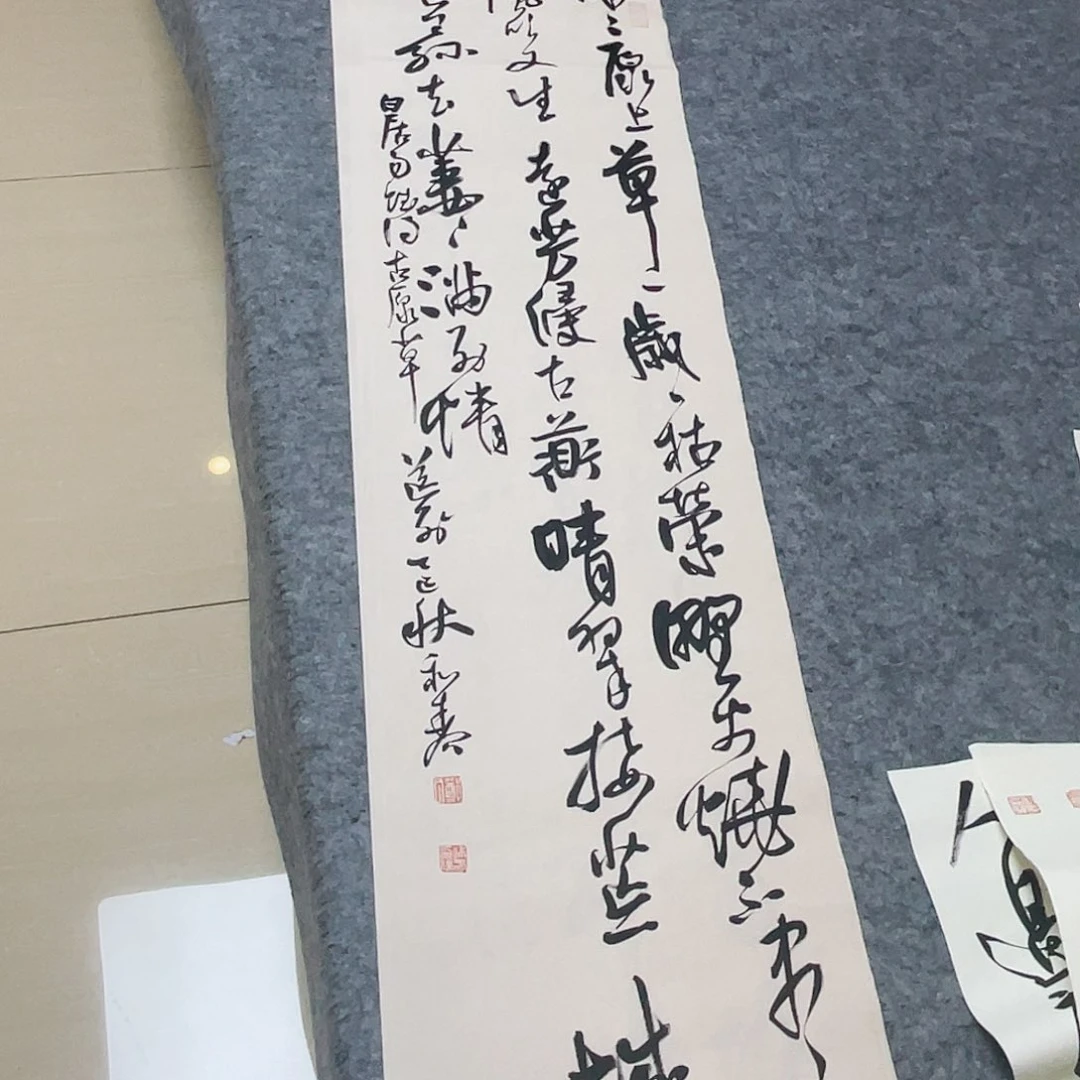 離〻原上草一歲一枯榮野火燒不盡
風吹又生遠芳侵古衜晴翠接荒城
王孫去萋〻滿別情
白居易賦得古原草送別乙巳秋和春